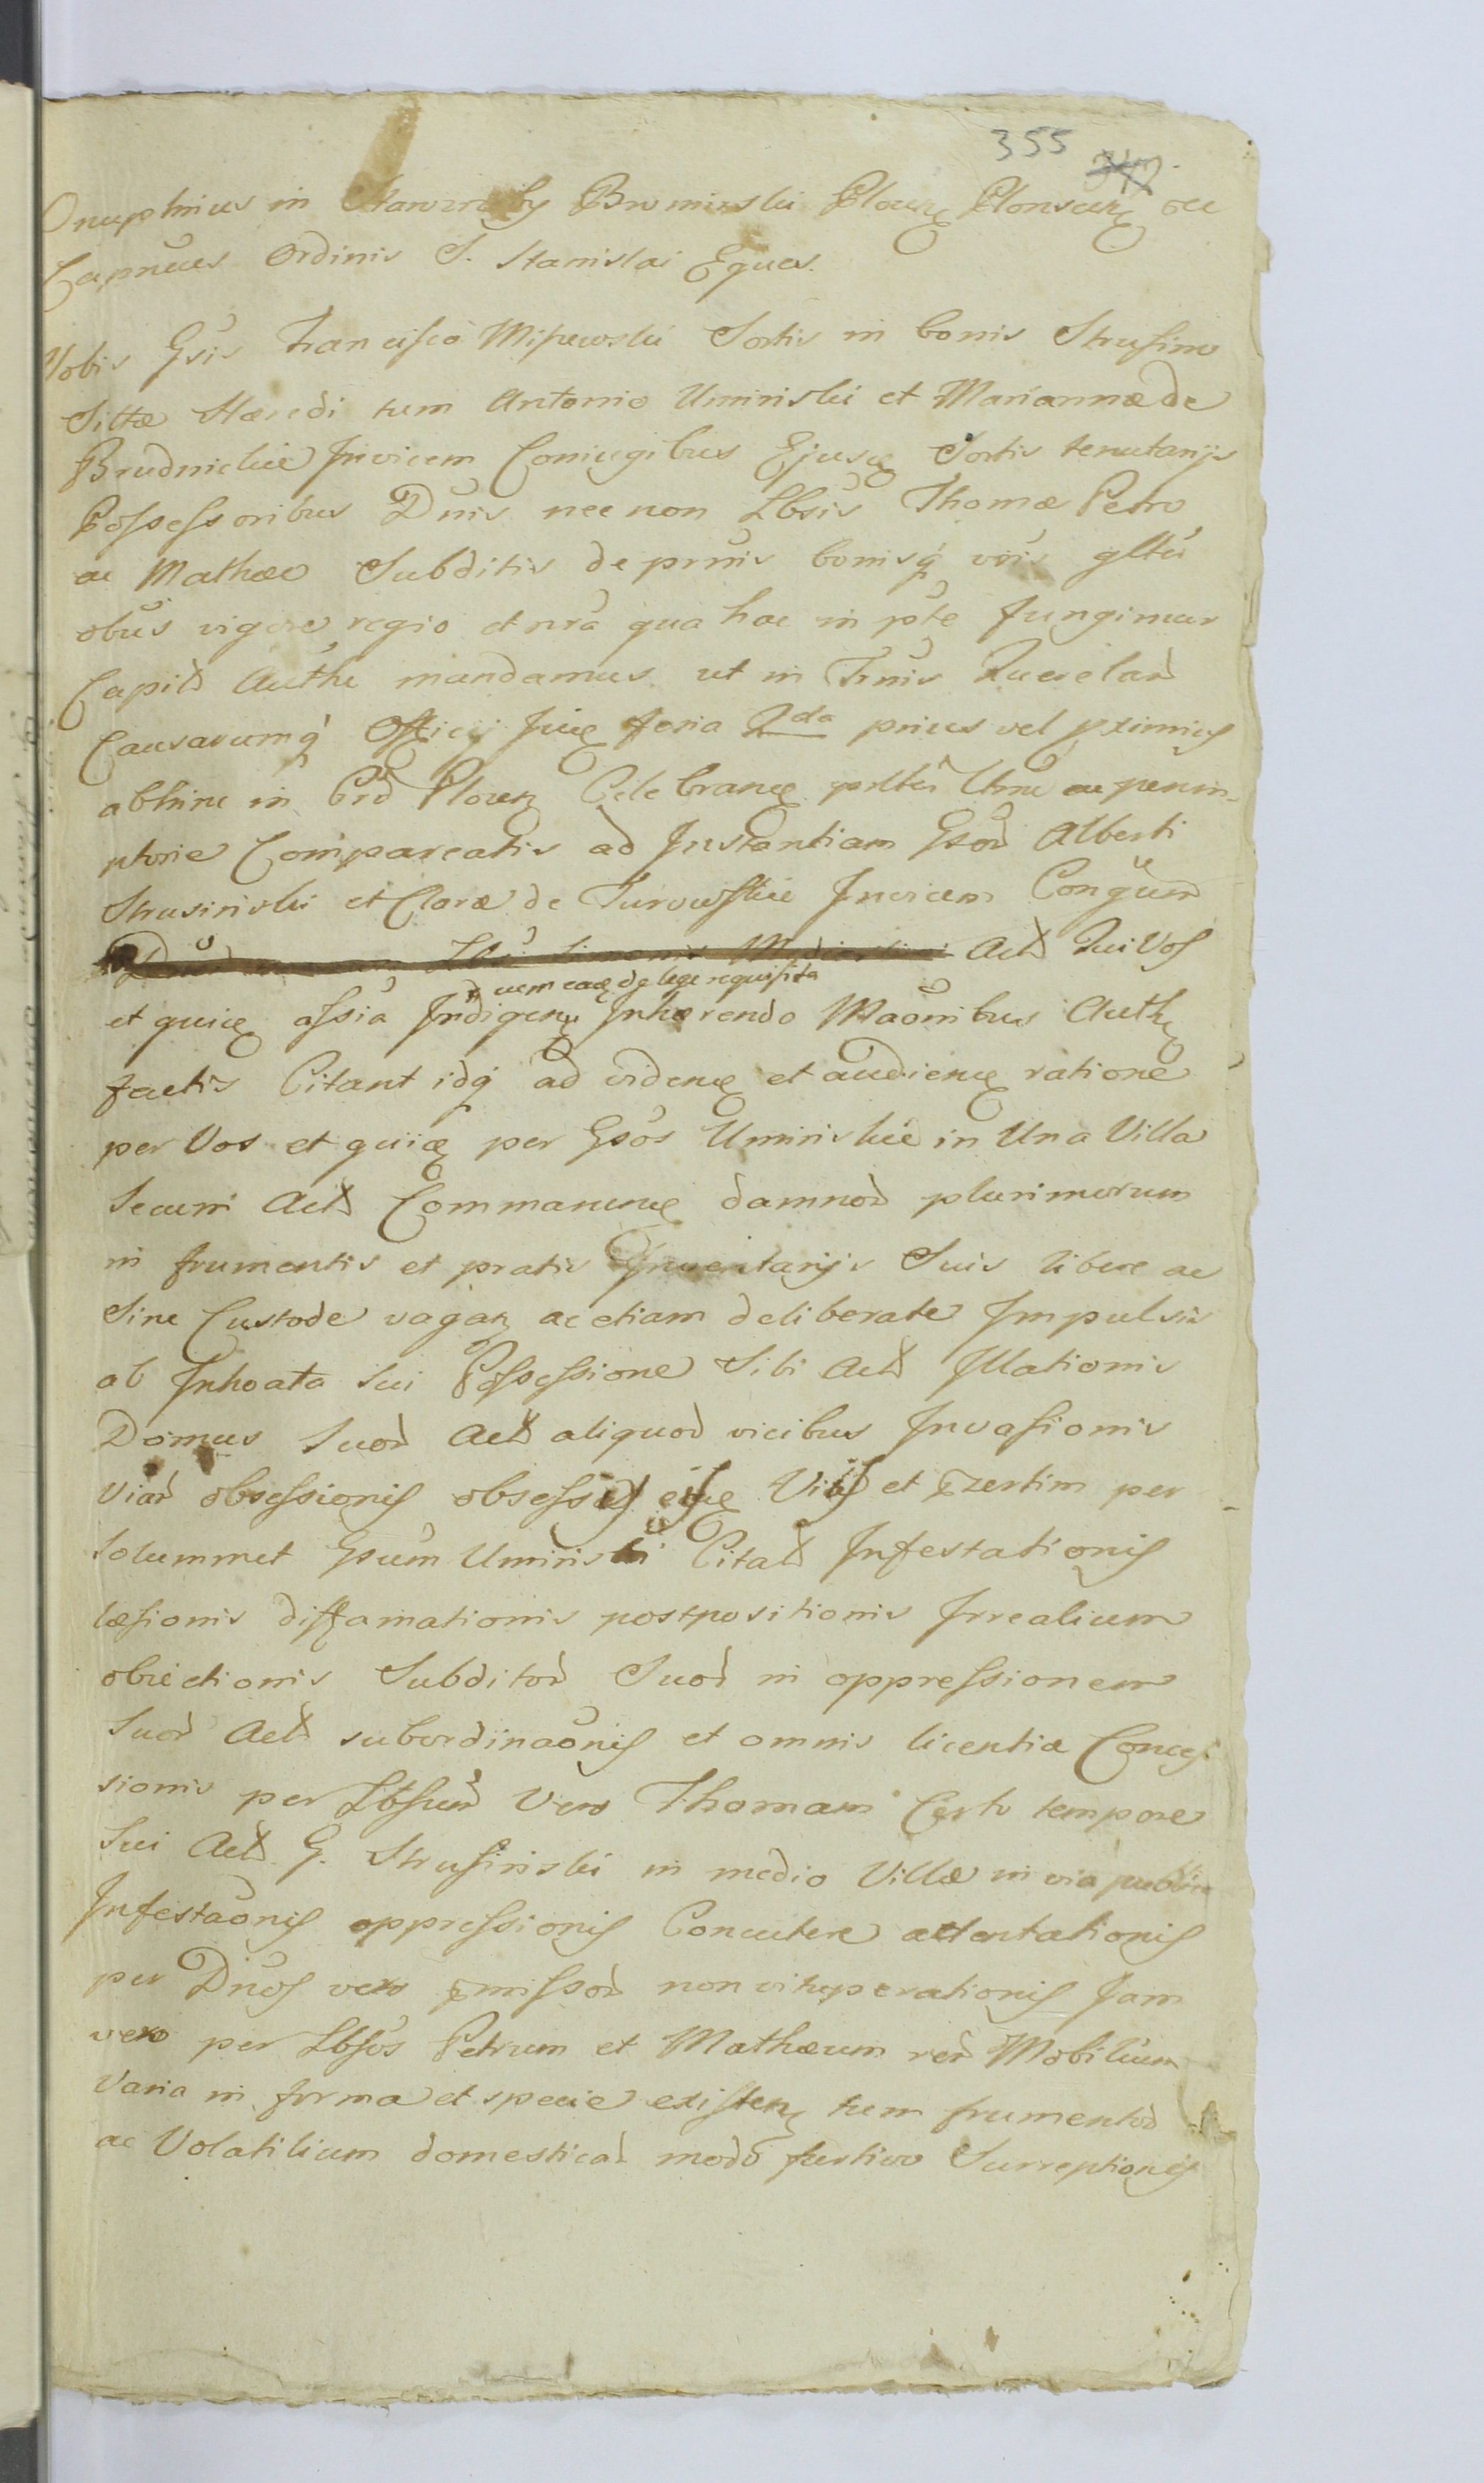 355
Onuphrius in Brominski Plocen Plonscen &c
Capneus Ordinis S. Stanislai Eques.
Vobis Gsis Francisco Misiewski Sortis in bonis Strusino
Sittæ Hæredi tum Antonio Uminski et Mariannæ de
Brudnickie Invicem Coniugibus Ejusq Sortis tenutarijs
Possessoribus Dnis nec non Lbsis Thomæ Petro
ac Mathæo Subditis de prmis bonisq vris gltu
obus vigore regio et nra qua hac in pte fungimur
Capitl Authe mandamus ut in Trnis Querelar
Causarumq Officij feria 2da prius vel pximius
abhinc in Plocen Celebran pultr ac perem-
ptorie Compareatis ad Instantiam Gsor Alberti
Strusinski et Claræ de Turowskie Invicem Congum
Act Qui Vos
cum ea de lege requisita
et quic assia Indigen Inhærendo Maonibus Auth
factis Citant idq ad viden et audien ratione
per Vos et quic per Gsos Uminskie in Una Villa
Secum Act Commanen damnor plurimorum
in frumentis et pratis Inventarijs Suis libere ac
Sine Custode vagan ac etiam deliberate Impulsis
ab Inhoata Sui Possessione Sibi Act Illationis
Domus Suor Act aliquod vicibus Invasionis
Viar obsessionis obsessis Vijs et przertim per
solummet Gsum Uminski Citat Infestationis
læsionis diffamationis postpositionis Irrealium
obiectionis Subditor Suor in oppressionem
Suor Act subordinaonis et omnis licentiæ Conces-
sionis per Lbsum Vero Thomam Certo tempore
Sui Act G. Strusinski in medio Villæ in via publica
Infestaonis oppressionis Concutere attentationis
per Dnos vero pmissor non vituperationis Jam
vero per Lbsos Petrum et Mathæum rer Mobilium
Varia in forma et specie existen tum frumentor
ac Volatilium domesticar modo furtivo Surreptionis